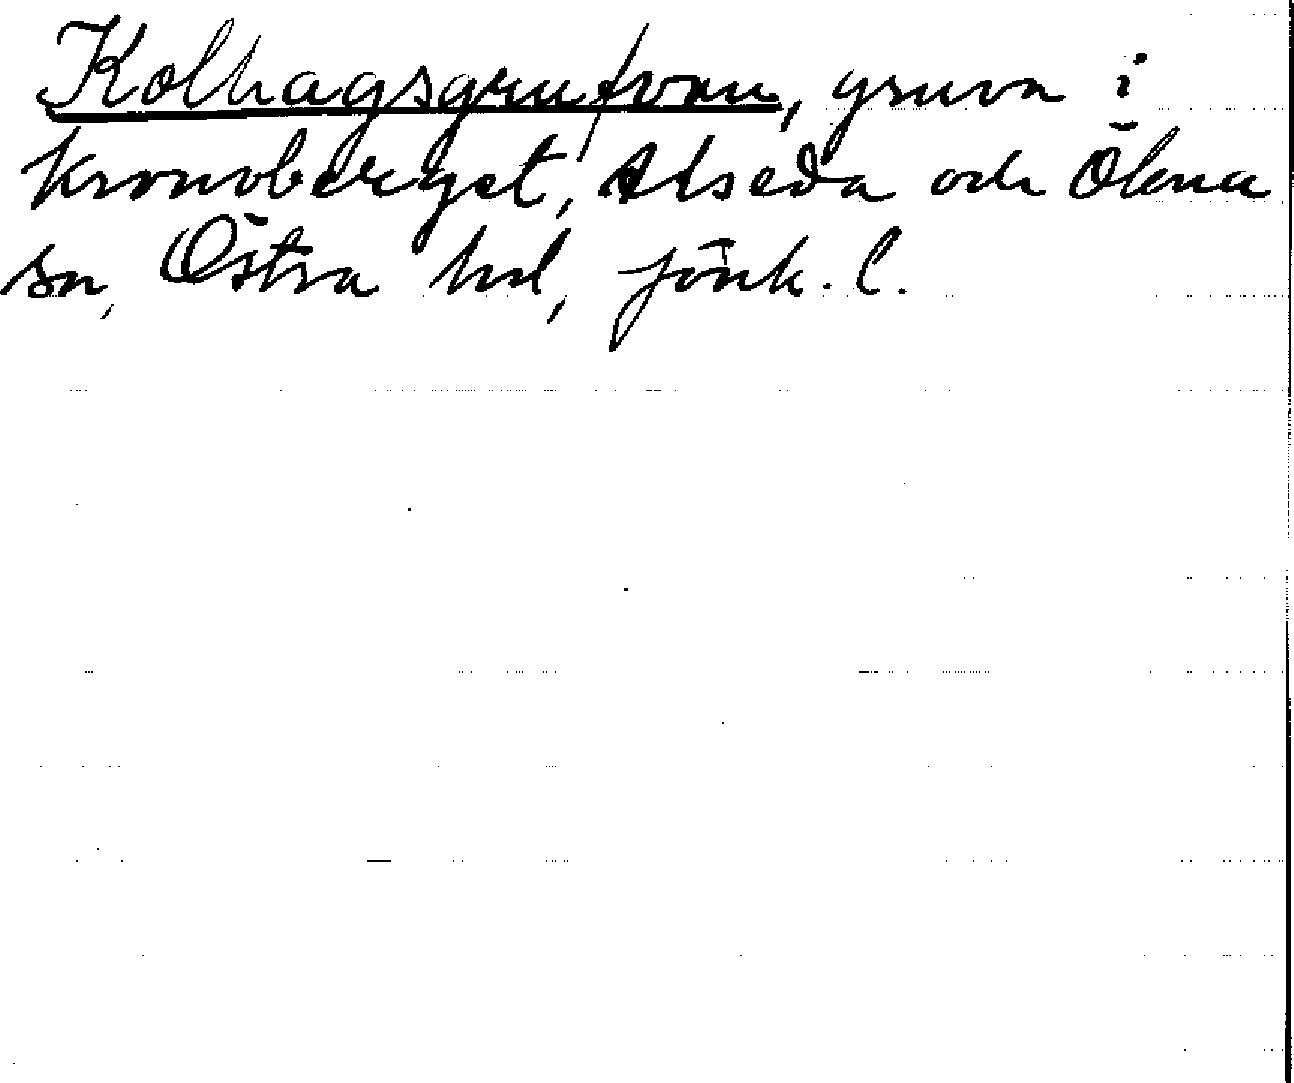 Kolhagsgrufvan, gruva i
kronoberget, Alseda och Ökna
sn, Östra hd, Jönk. l.